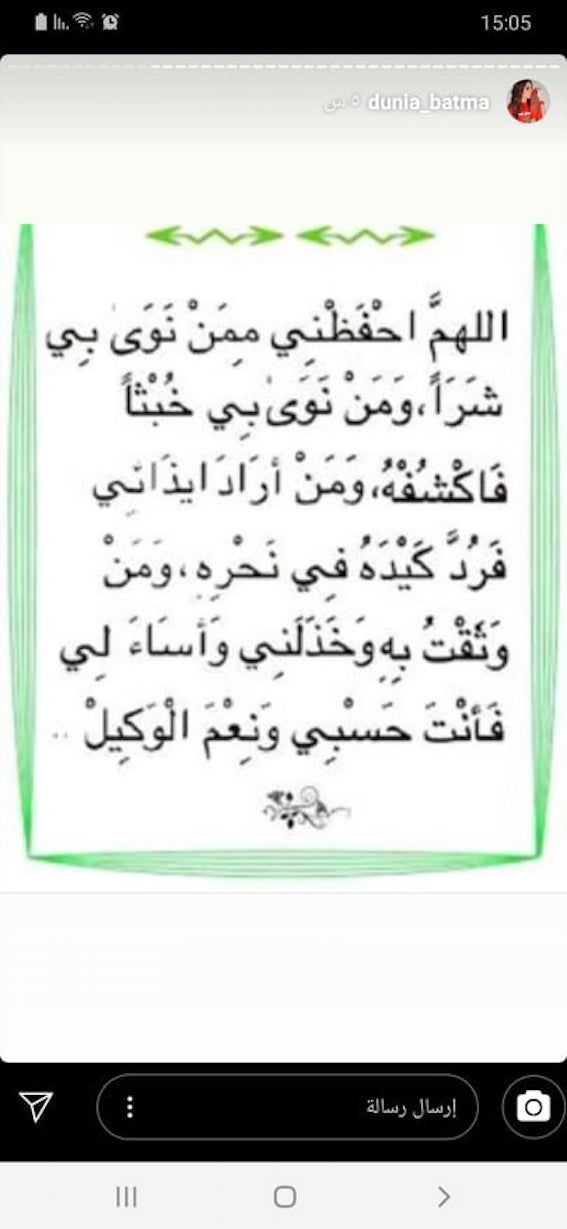 15:05
dunia_batma ٥ س
اللهمَّ احْفَظْنِي مِمَنْ نَوَىٰ بِي
شَرَاً، وَمَنْ نَوَىٰ بِي خُبْثاً
فَاكْشُفْهُ، وَمَنْ أرَادَ ايذَائِي
فَرُدَّ كَيْدَهُ فِي نَحْرِهِ، وَمَنْ
وَثَقْتُ بِهِ وَخَذَلَنِي وَأَسَاءَ لِي
فَأَنْتَ حَسْبِي وَنِعْمَ الْوَكِيلْ ..
إرسال رسالة